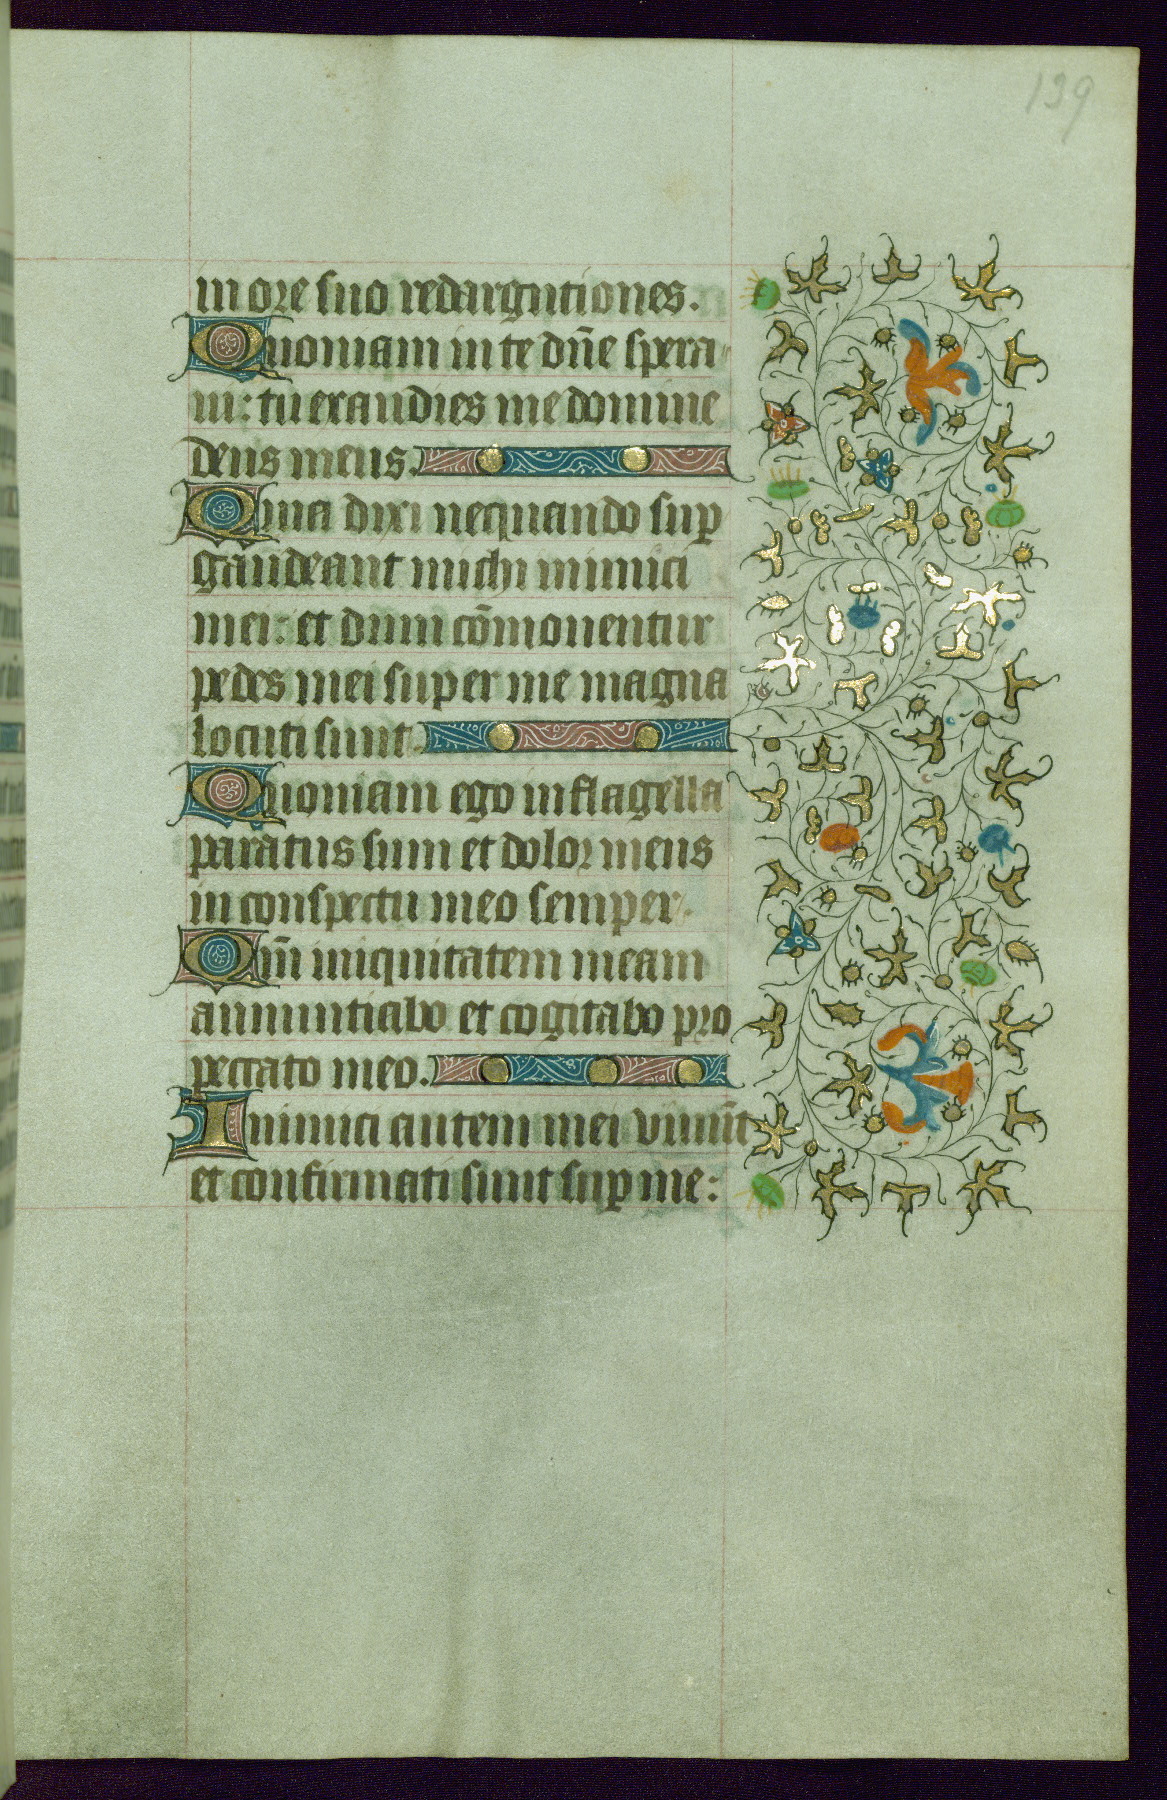 139
in ore suo redargutiones.
Quoniam in te dn̄e spera-
ui: tu exaudies me domine
deus meus.
Quia dixi nequando sup
gaudeant michi inimici
mei: et dum cōmouentur
pedes mei super me magna
locuti sunt.
Quoniam ego in flagella
paratus sum et dolor meus
in conspectu meo semper.
Qm̄ iniquitatem meam
annuntiabo et cogitabo pro
peccato meo.
Inimici autem mei viuūt
et confirmati sunt sup me: